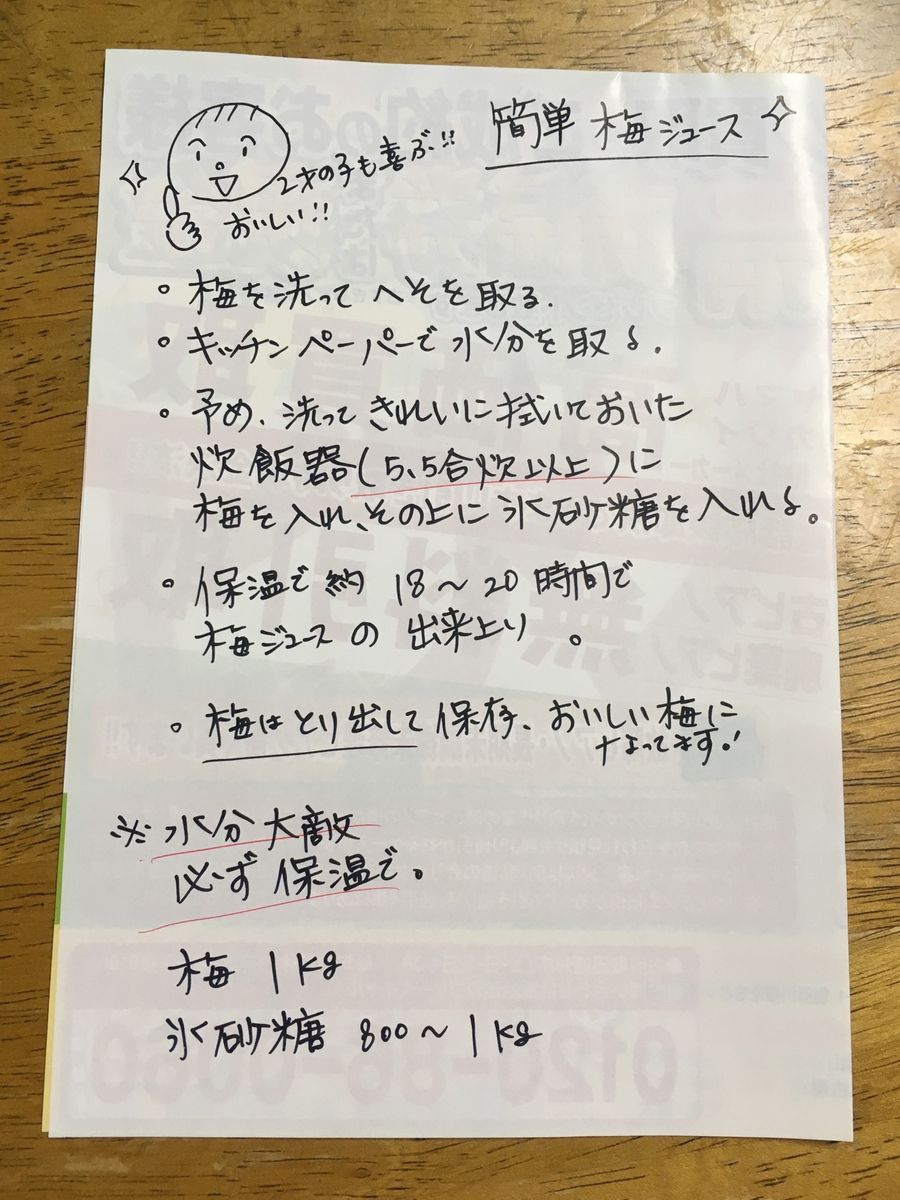 簡単 梅ジュース
2才の子も喜ぶ!!
おいしい!!
。梅を洗ってへそを取る.
。キッチンペーパーで水分を取る.
。予め、洗ってきれいに拭いておいた
炊飯器(5,5合炊以上)に
梅を入れ、その上に氷砂糖を入れる。
。保温で約 18〜20時間で
梅ジュースの 出来上り 。
。梅はとり出して保存、おいしい梅に
なってます。!
※水分大敵
必ず保温で。
梅 1kg
氷砂糖 800〜1kg
0120-86-0060